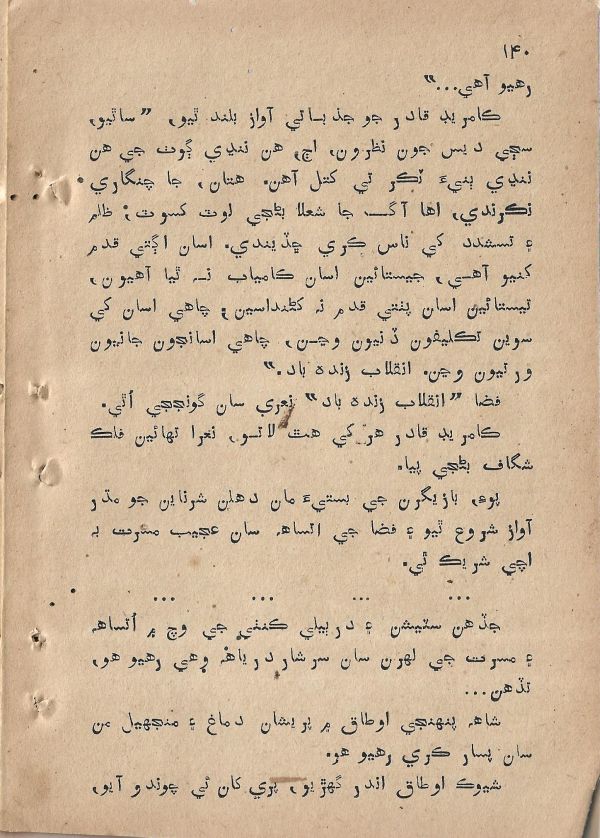 ۱۴۰
رهيو آهي...”
ڪامريڊ قادر جو جذباتي آواز بلند ٿيو، ”ساٿيو،
سڄي ديس جون نظرون، اڄ، هن ننڍي ڳوٺ جي هن
ننڍي ٻنيءَ ٽڪر تي کتل آهن. هتان، جا چنگاري
نڪرندي، اها آگ جا شعلا بڻجي لوٽ کسوٽ؛ ظلم
۽ تشدد کي ناس ڪري ڇڏيندي. اسان اڳتي قدم
کنيو آهي، جيستائين اسان ڪامياب نه ٿيا آهيون،
تيستائين اسان پٺتي قدم نه کڻنداسين؛ چاهي اسان کي
سوين تڪليفون ڏنيون وڃن، چاهي اسانجون جانيون
ورتيون وڃن. انقلاب زنده باد.“
فضا ”انقلاب زنده باد“ نعري سان گونججي اُٿي.
ڪامريڊ قادر هر کي هٿ لاٿو، نعرا تهائين فلڪ
شگاف بڻجي پيا.
پوءِ، بازيگرن جي بستيءَ مان دهلن شرناين جو مڌر
آواز شروع ٿيو ۽ فضا جي اتساهه سان عجيب مسرت به
اچي شريڪ ٿي.
... ... ... ...
جڏهن سٽيشن ۽ درٻيلي ڪنڌي جي وچ ۾ اُتساهه
۽ مسرت جي لهرن سان سرشار درياهه وهي رهيو هو،
تڏهن...
شاهه پنهنجي اوطاق ۾ پريشان دماغ ۽ منجهيل من
سان پسار ڪري رهيو هو.
شيوڪ اوطاق اندر گهڙيو، پري کان ئي چوندو آيو،